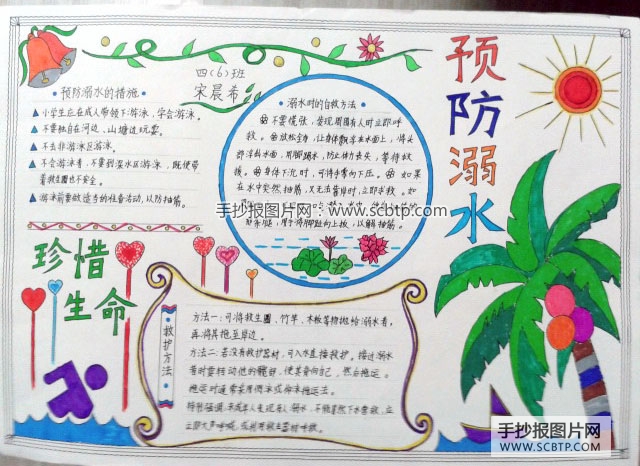 预防溺水
四（6）班
宋晨希
预防溺水的措施
小学生应在成人带领下游泳，学会游泳。
不要独自在河边、山塘边玩耍。
不去非游泳区游泳。
不会游泳者，不要到深水区游泳，既使带
着救生圈也不安全。
游泳前要做适当的准备活动，以防抽筋。
溺水时的自救方法
不要慌张，发现周围有人时立即呼
救。放松全身，让身体飘浮在水面上，将头
部浮出水面，用脚踢水，防止体力丧失，等待救
援。身体下沉时，可将手掌向下压。如果
在水中突然抽筋，又无法靠岸时，立即求救。如
用手将脚趾向上扳，以解抽筋。
手抄报图片网：www.scbtp.com
珍惜
生命
救护方法
方法一：可将救生圈、竹竿、木板等物抛给溺水者，
再将其拖至岸边。
方法二：若没有救护器材，可入水直接救护。接近溺水
者时要转动他的髋部，使其背向自己，然后拖运。
拖运时通常采用侧泳或仰泳拖运法。
特别强调：未成年人发现有人溺水，不能冒然下水营救，立
立即大声呼喊，或利用救生器材呼救。
手抄报图片网
WWW.SCBTP.COM